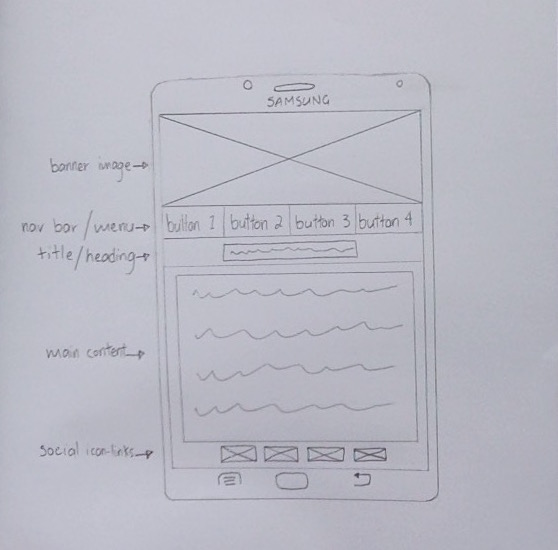 SAMSUNG
banner image
nav bar/menu
button 1 button 2 button 3 button 4
title/heading
main content
social icon-links